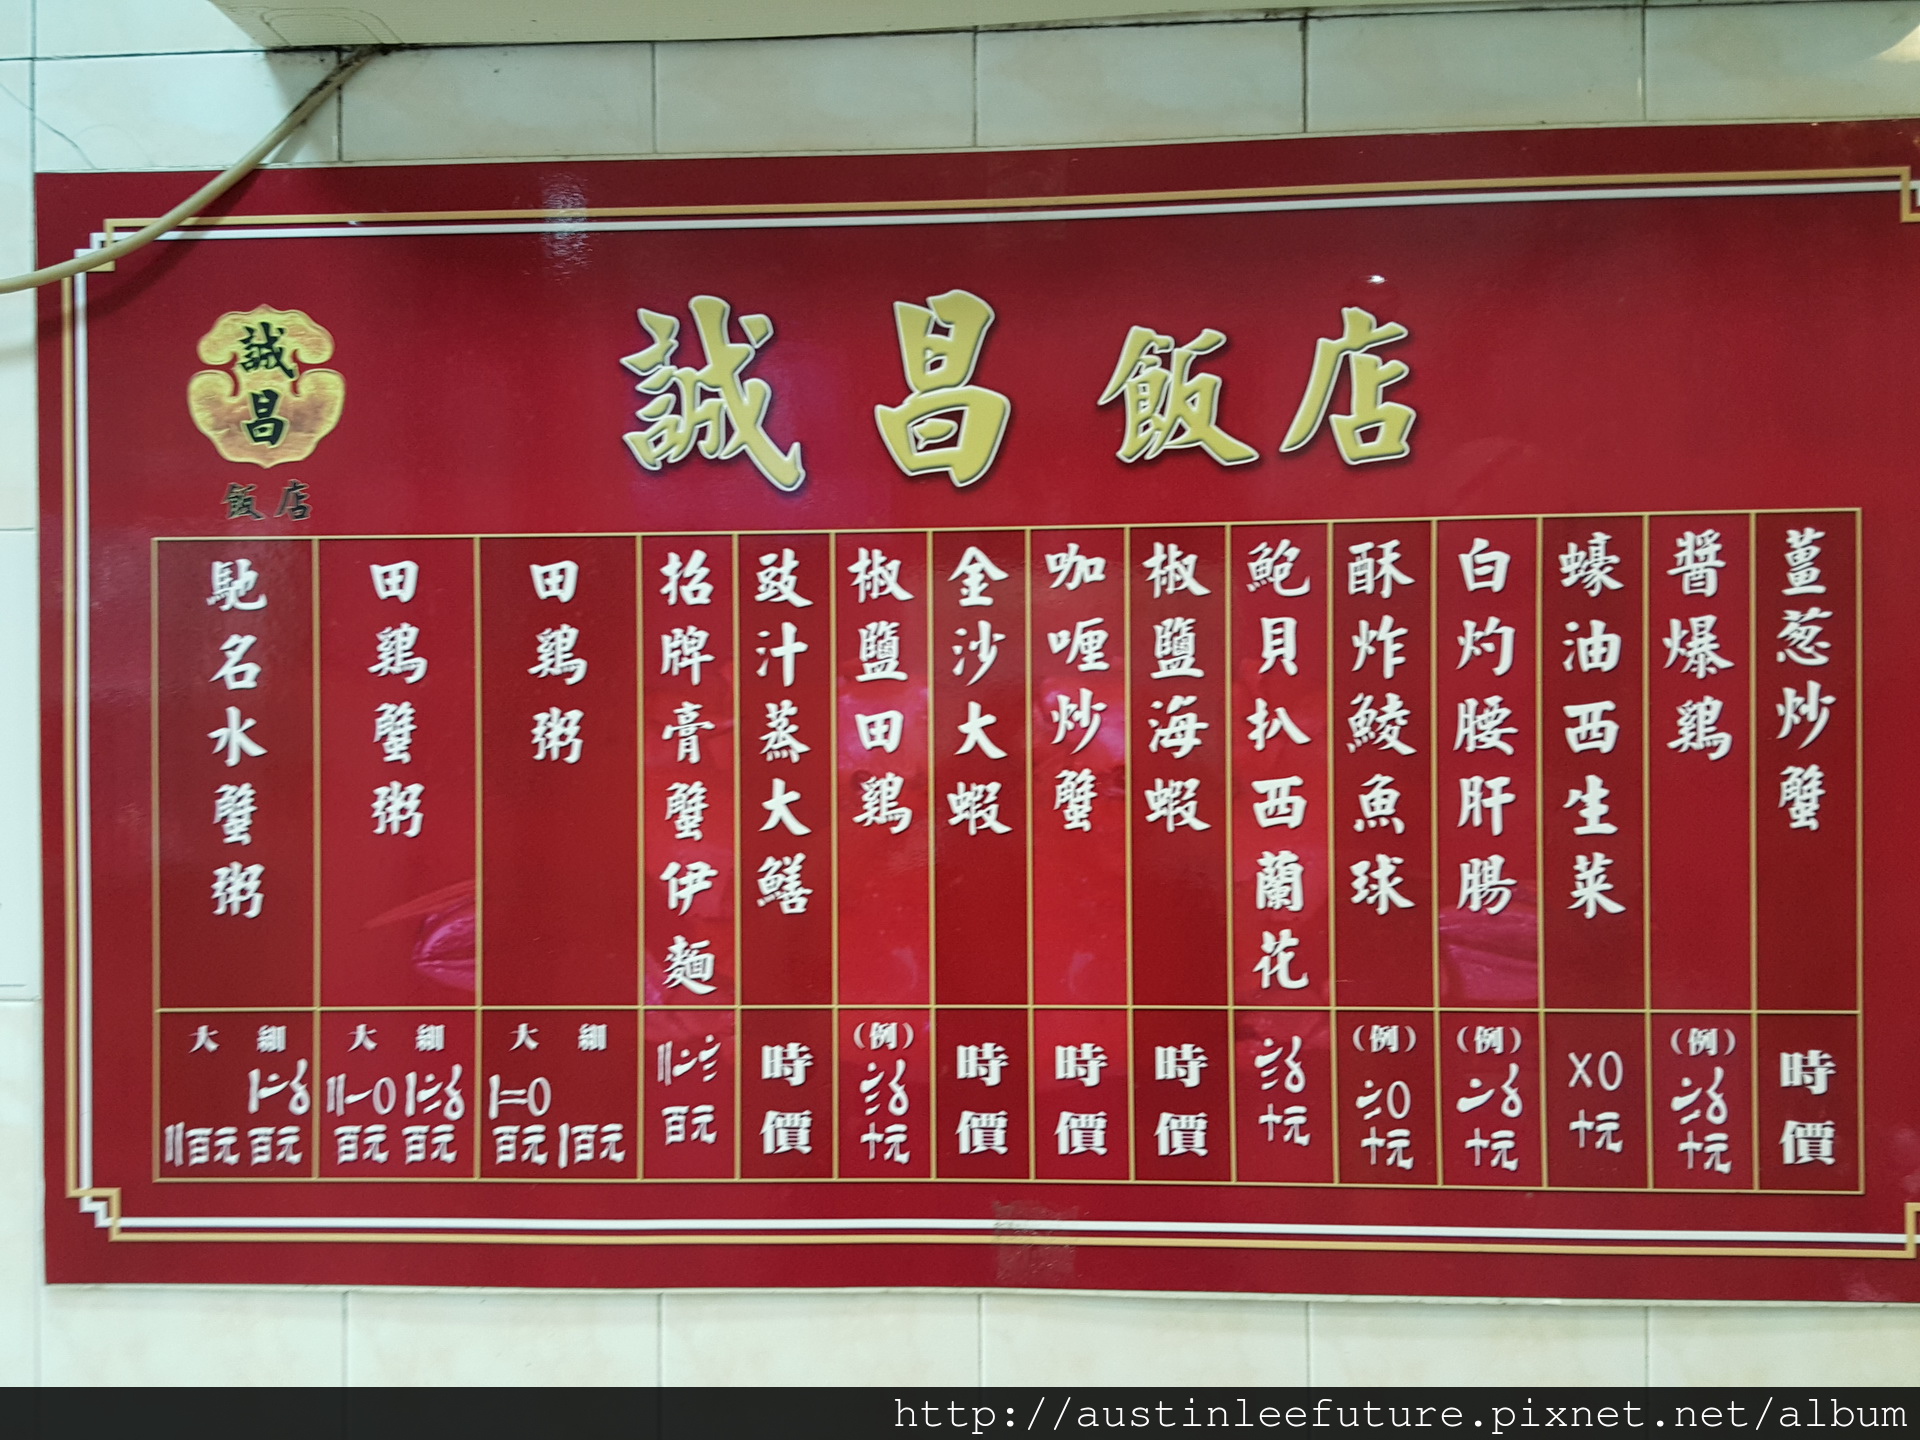 誠昌飯店
誠昌
飯店
薑葱炒蟹 時價
醬爆鷄 (例) 〧〥十元
蠔油西生菜 〤〇十元
白灼腰肝腸 (例) 〦〥十元
酥炸鯪魚球 (例) 〧〇十元
鮑貝扒西蘭花 〧〥十元
椒鹽海蝦 時價
咖喱炒蟹 時價
金沙大蝦 時價
椒鹽田鷄 (例) 〧〥十元
豉汁蒸大鱔 時價
招牌膏蟹伊麵 〢〦〧百元
田鷄粥 細 〡百元 大 〡二〇百元
田鷄蟹粥 細 〡〧〥百元 大 〢一〇百元
馳名水蟹粥 細 〡〦〥百元 大 〢百元
http://austinleefuture.pixnet.net/album